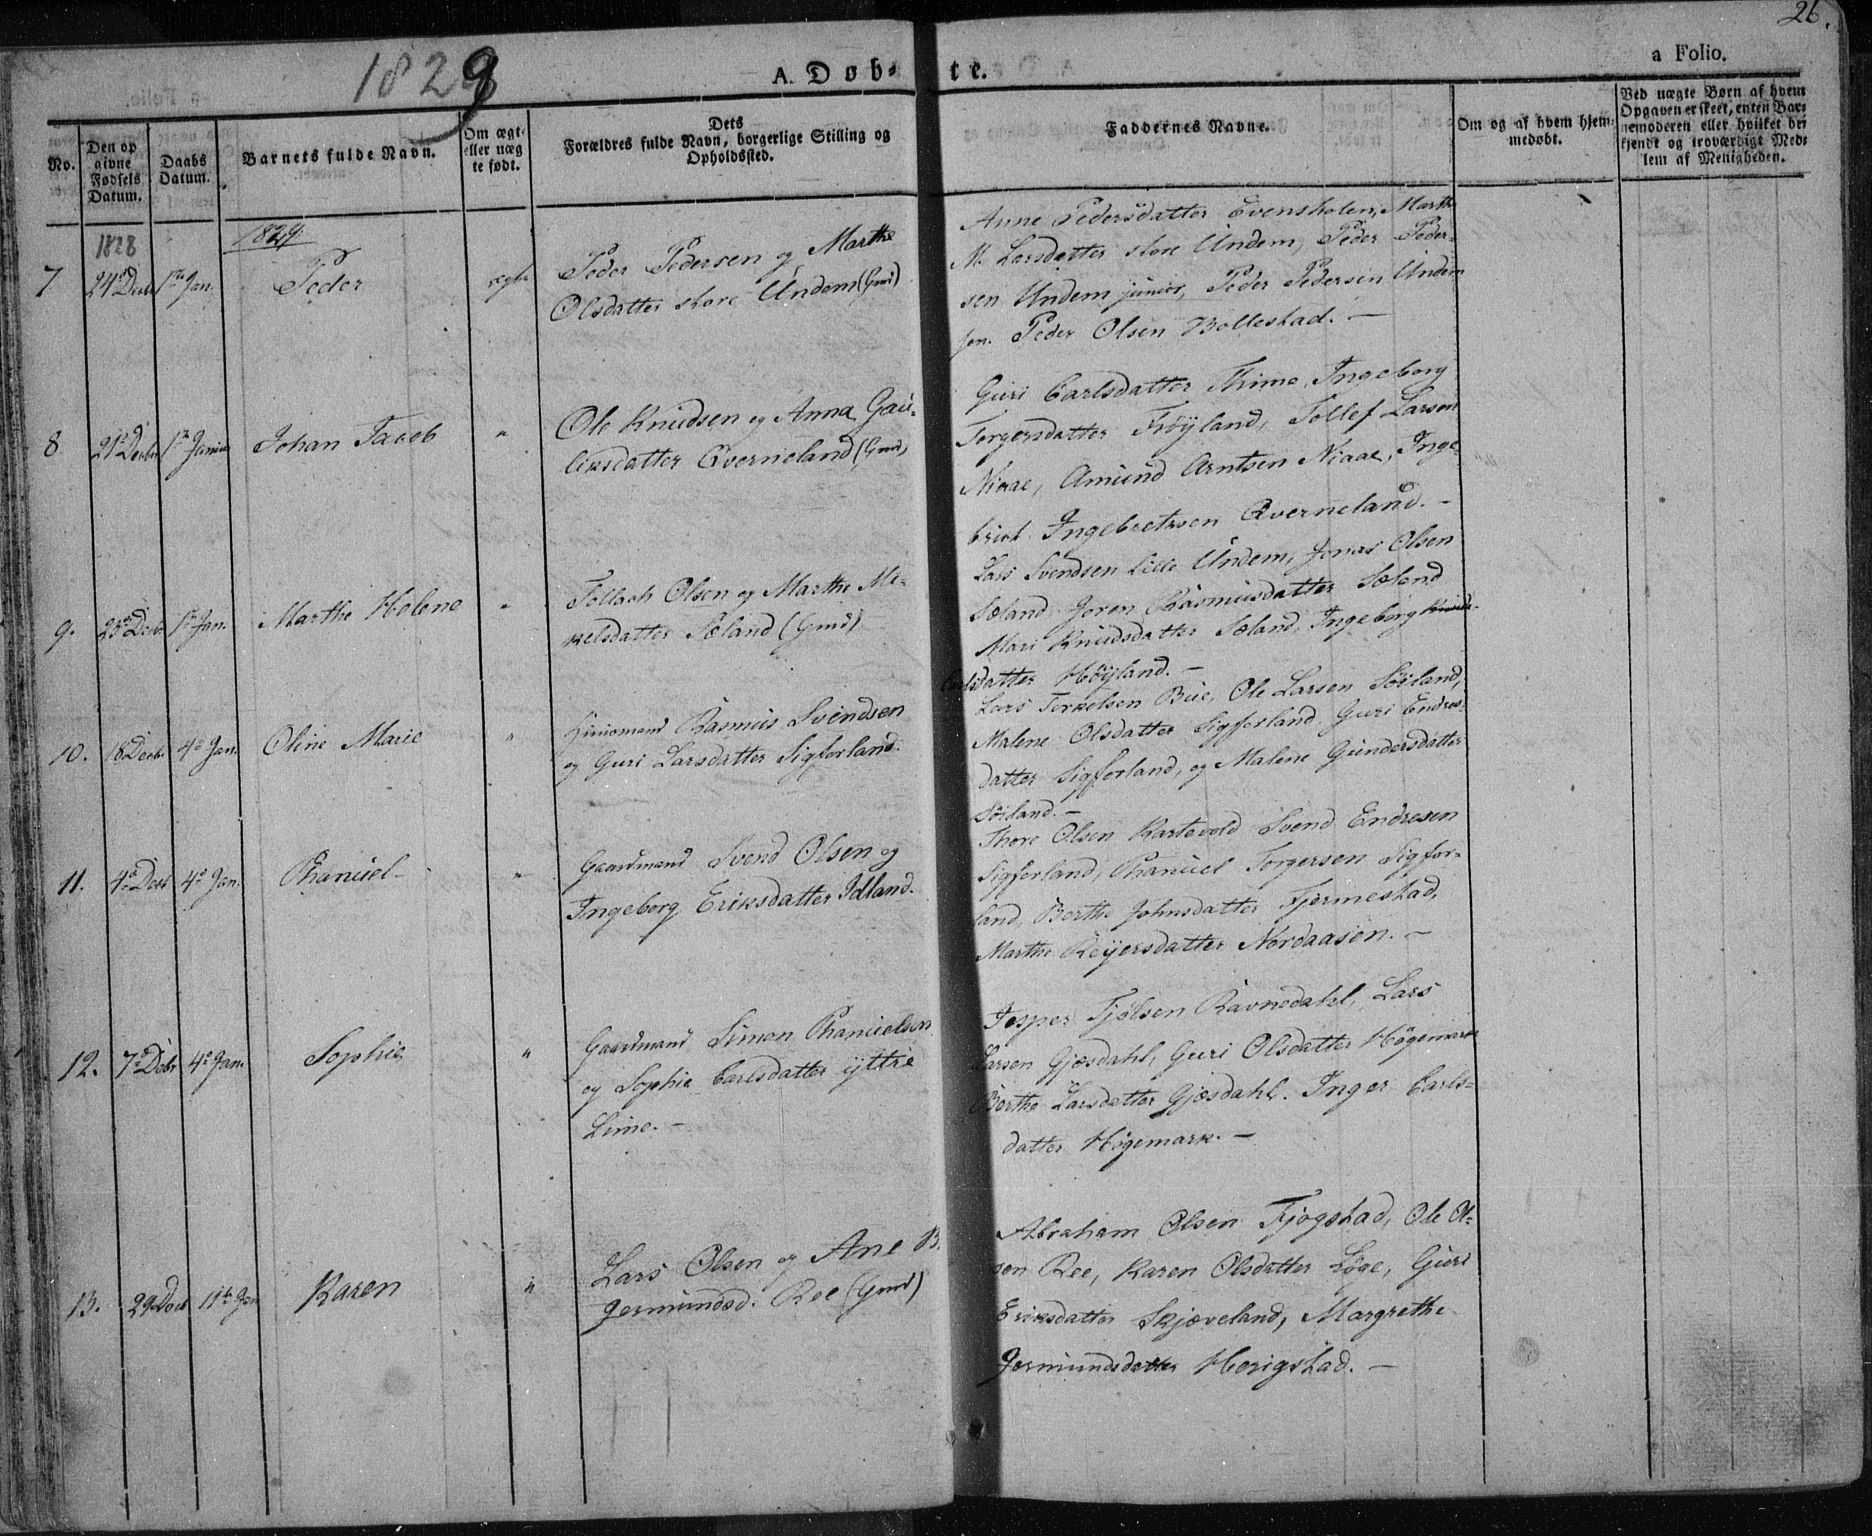 26.
1829
A. Døb- te.
a Folio.
No.
Den op
givne
Fødsels
Datum.
Daabs
Datum.
Barnets fulde Navn.
Om ægt-
eller uæg
te født.
Dets
Forældres fulde Navn, borgerlige Stilling og
Opholdssted.
Faddernes Navne.
Om og af hvem hjem-
medøbt.
Ved uægte Børn af hvem
Opgaven er skeet, enten Bar-
nemoderen eller hvilket be-
kjendt og troværdigt Med-
lem af Menigheden.
1828
1829
7
24de Decbr
1ste Jan.
Peder
ægte
Peder Pedersen og Marthe
Olsdatter store Undem (Gmd)
Anne Pedersdatter Evensholen, Marthe
M. Larsdatter store Undem, Peder Peder-
sen Undem junior, Peder Pedersen Undem
sen. Peder Olsen Bollestad. —
8
21de Decbr
1ste Januar
Johan Jacob
"
Ole Knudsen og Anna Gau-
liksdatter Qverneland (Gmd)
Guri Carlsdatter Thime, Ingeborg
Torgersdatter Frøyland, Tollef Larsen
Niaae, Amund Arntsen Niaae, Inge-
brict Ingebretsen Qverneland. —
9.
25de Decbr
1ste Jan.
Marthe Helene
"
Tollach Olsen og Marthe Mi-
kelsdatter Sæland (Gmd)
Lars Svendsen Lille Undem, Jonas Olsen
Sæland Joren Rasmusdatter Sæland
Mari Knudsdatter Sæland, Ingeborg
Carlsdatter Høyland. —
10.
18 Decbr.
4de Jan.
Oline Marie
"
Huusmand Rasmus Svendsen
og Guri Larsdatter Sigferland.
Lars Torkelsen Bue, Ole Larsen Söiland,
Malene Olsdatter Sigferland. Guri Endres-
datter Sigferland, og Malene Gundersdatter
Söiland. —
11.
4de Decb
4de Jan.
Thanuel
"
Gaardmand Svend Olsen og
Ingeborg Eriksdatter Idland.
Thore Olsen Kartevold Svend Endresen
Sigferland, Thanuel Torgersen Sigfer-
land, Berthe Johnsdatter Fjermestad,
Marthe Reyersdatter Nordaasen. —
12.
7de Debr
4de Jan.
Sophie
"
Gaardmand Simon Thanuelsen
og Sophie Carlsdatter yttre
Lime. —
Jesper Tjølsen Ravnedahl, Lars
Larsen Gjæsdahl, Guri Olsdatter Høgemark
Berthe Larsdatter Gjæsdahl. Inger Carls-
datter Høgemark. —
13.
29 Decb
11te Jan
Karen
"
Lars Olsen og Ane B.
Germundsd. Ree (Gmd)
Abraham Olsen Fjogstad, Ole Ol-
sen Ree, Karen Olsdatter Løge, Guri
Eriksdatter Skjæveland, Margrethe
Germundsdatter Herigstad. —